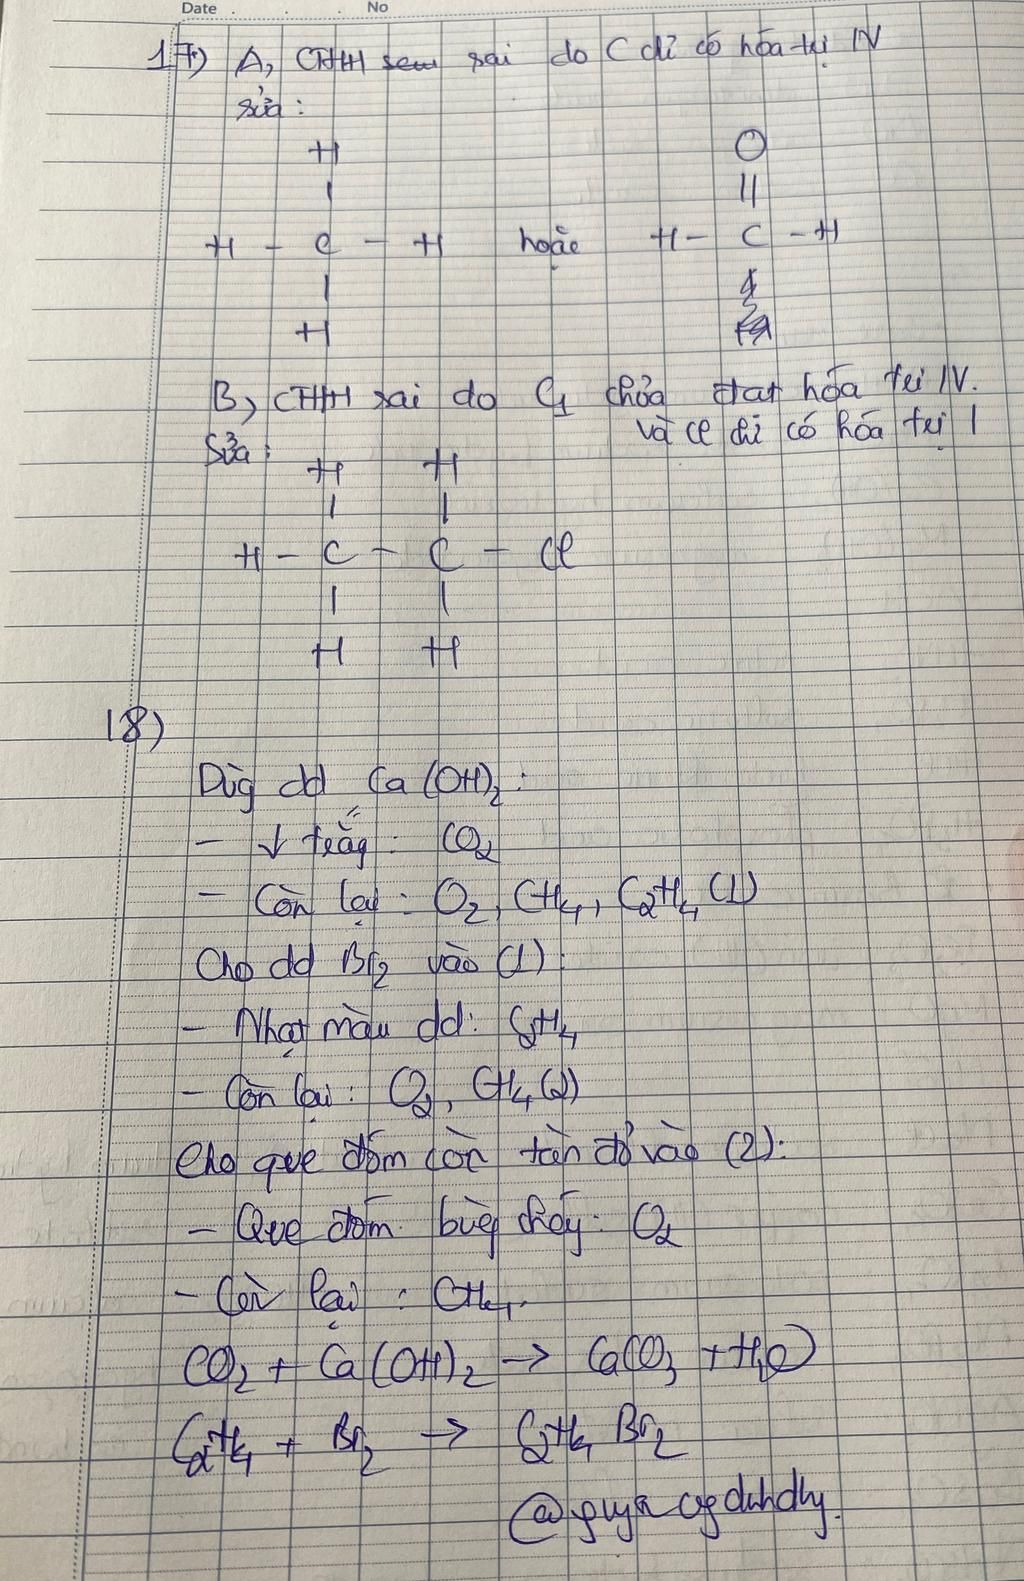 Date . . . No
17) A, CTHH sai do C chỉ có hóa trị IV
sửa:
H O
| ||
H - C - H hoặc H - C - H
|
H
B, CTHH sai do C1 chưa đạt hóa trị IV.
và Cl chỉ có hóa trị I
Sửa:
H H
| |
H - C - C - Cl
| |
H H
18)
Dùg dd Ca(OH)2:
- ↓ trắg: CO2
- Còn lại: O2, CH4, C2H4 (1)
Cho dd Br2 vào (1):
- Nhạt màu dd: C2H4
- Còn lại: O2, CH4 (2)
Cho que đóm còn tàn đỏ vào (2):
- Que đóm bùg cháy: O2
- Còn lại: CH4.
CO2 + Ca(OH)2 → CaCO3 + H2O
C2H4 + Br2 → C2H4Br2